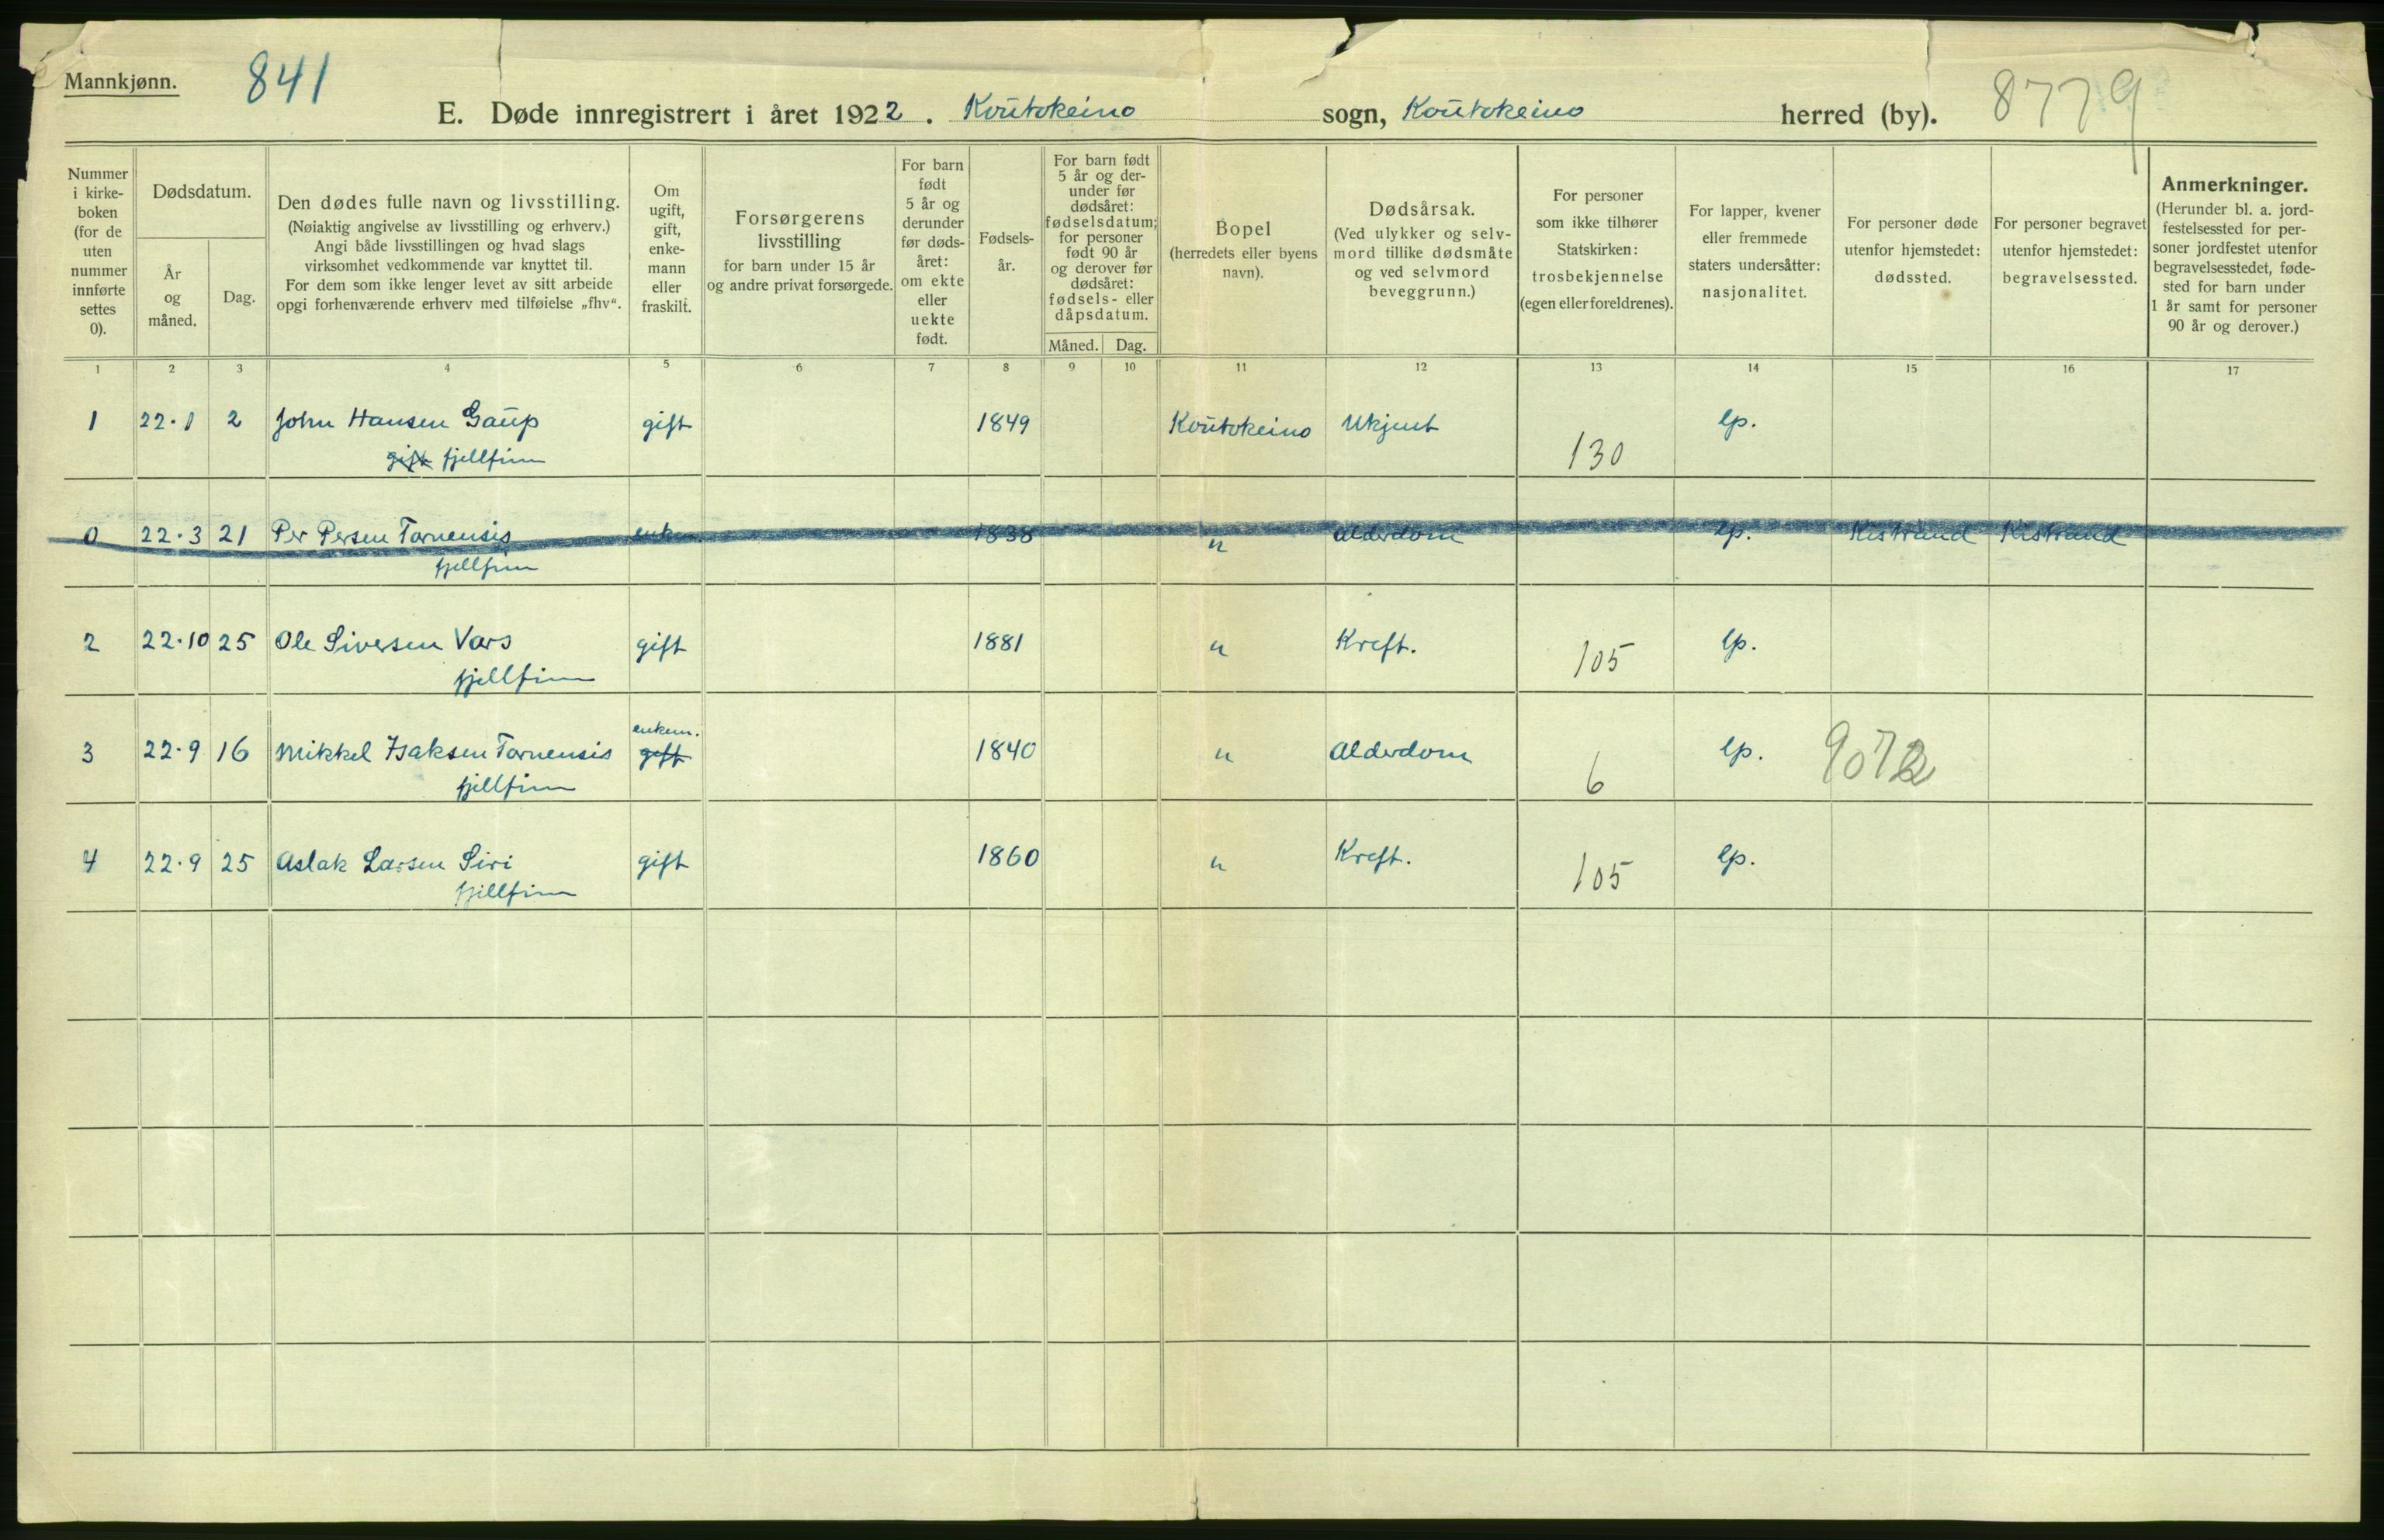 Mannkjønn.
841
E. Døde innregistrert i året 1922. Koutokeino sogn, Koutokeino herred (by).
8779
Nummer i kirkeboken (for de uten nummer innførte settes 0).
Dødsdatum.
År og måned.
Dag.
Den dødes fulle navn og livsstilling.
(Nøiaktig angivelse av livsstilling og erhverv.)
Angi både livsstillingen og hvad slags
virksomhet vedkommende var knyttet til.
For dem som ikke lenger levet av sitt arbeide
opgi forhenværende erhverv med tilføielse „fhv“.
Om ugift, gift, enkemann eller fraskilt.
Forsørgerens
livsstilling
for barn under 15 år
og andre privat forsørgede.
For barn født 5 år og derunder før dødsåret: om ekte eller uekte født.
Fødselsår.
For barn født 5 år og derunder før dødsåret: fødselsdatum; for personer født 90 år og derover før dødsåret: fødsels- eller dåpsdatum.
Måned. Dag.
Bopel
(herredets eller byens
navn).
Dødsårsak.
(Ved ulykker og selvmord tillike dødsmåte og ved selvmord beveggrunn.)
For personer
som ikke tilhører
Statskirken:
trosbekjennelse
(egen eller foreldrenes).
For lapper, kvener
eller fremmede
staters undersåtter:
nasjonalitet.
For personer døde
utenfor hjemstedet:
dødssted.
For personer begravet
utenfor hjemstedet:
begravelsessted.
Anmerkninger.
(Herunder bl. a. jordfestelsessted for personer jordfestet utenfor begravelsesstedet, fødested for barn under 1 år samt for personer 90 år og derover.)
1 2 3 4 5 6 7 8 9 10 11 12 13 14 15 16 17
1 22.1 2 John Hansen Gaup gift 1849 Koutokeino Ukjent 130 lp.
gift fjellfinn
0 22.3 21 Per Persen Tornensis enkem. 1838 " Alderdom lp. Kistrand Kistrand
fjellfinn
2 22.10 25 Ole Siversen Vars gift 1881 " Kreft. 105 lp.
fjellfinn
enkem.
3 22.9 16 Mikkel Isaksen Tornensis gift 1840 " Alderdom 6 lp. 9072
fjellfinn
4 22.9 25 Aslak Larsen Siri gift 1860 " Kreft. 105 lp.
fjellfinn